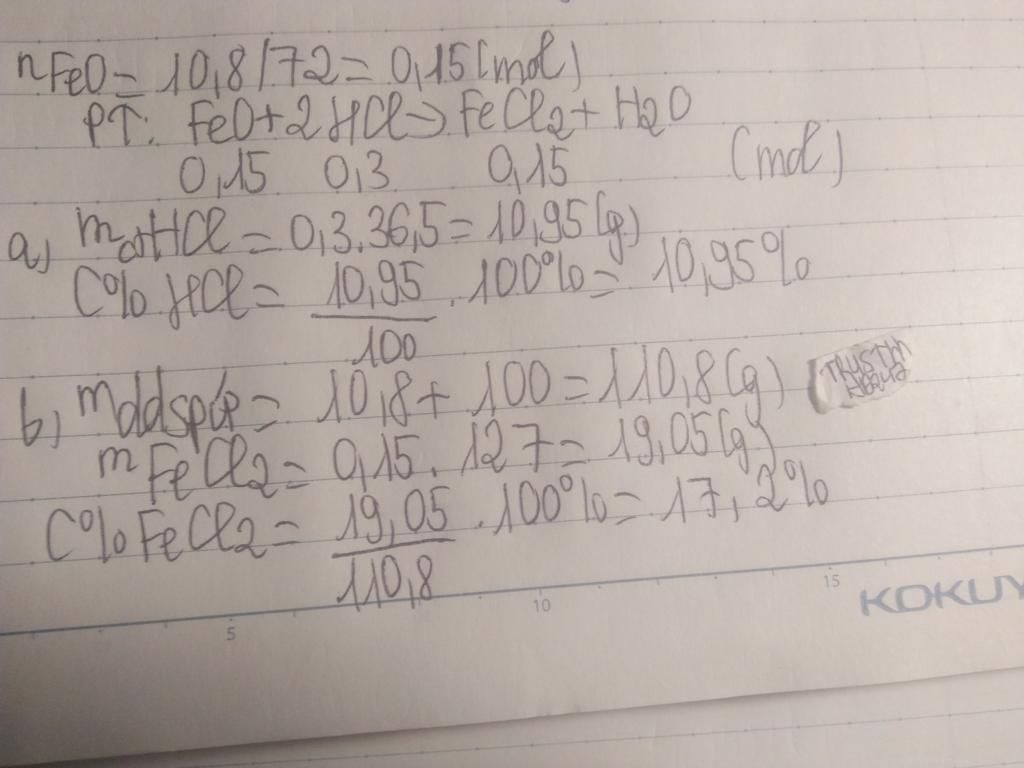 nFeO = 10,8/72 = 0,15(mol)
PT: FeO + 2HCl -> FeCl2 + H2O
0,15 0,3 0,15 (mol)
a) mctHCl = 0,3.36,5 = 10,95(g)
C% HCl = 10,95/100 . 100% = 10,95%
b) mddspứ = 10,8 + 100 = 110,8(g)
mFeCl2 = 0,15.127 = 19,05(g)
C%FeCl2 = 19,05/110,8 . 100% = 17,2%
5 10 15 KOKUY